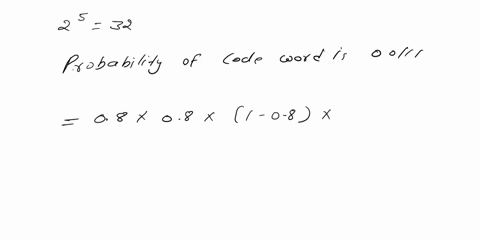 2^5 = 32
Probability of code word is 00111
= 0.8 × 0.8 × (1-0.8) ×